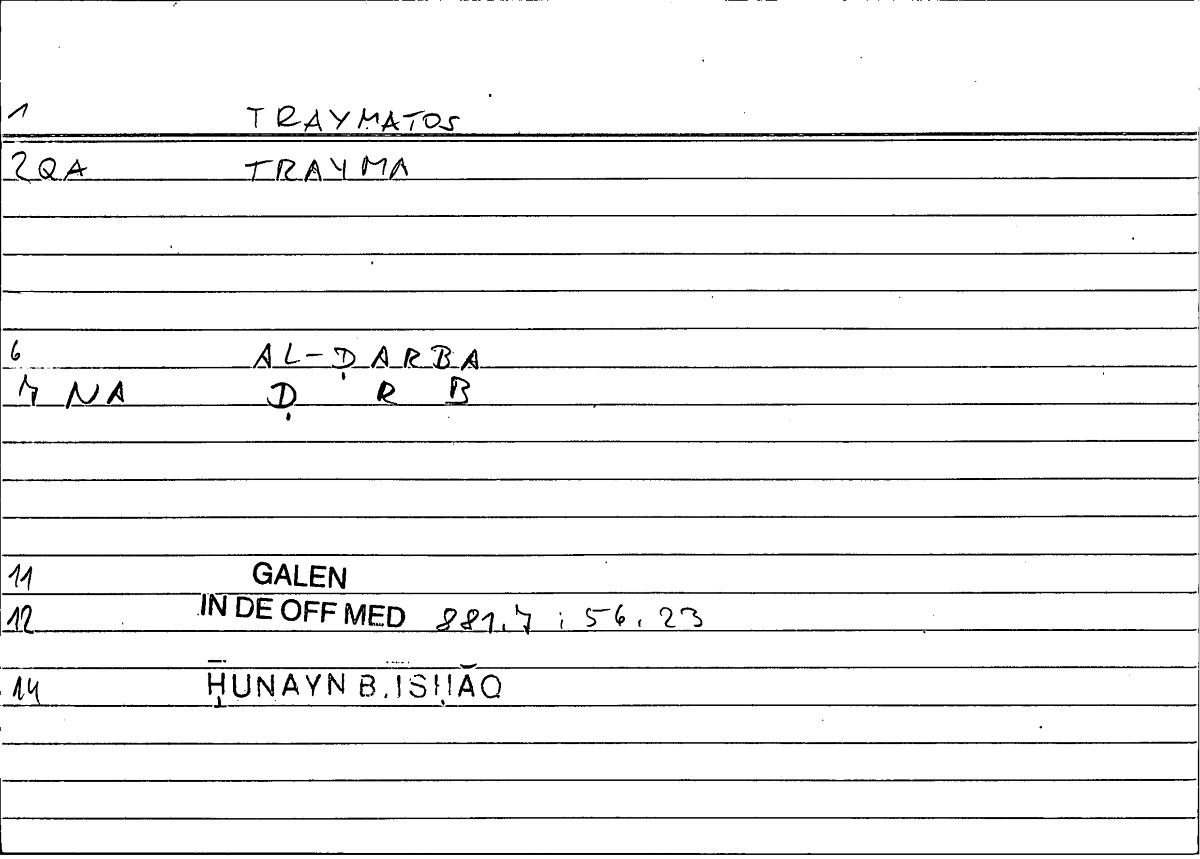 1 TRAYMATOS
2QA TRAYMA
6 AL-ḌARBA
7 NA Ḍ R B
11 GALEN
12 IN DE OFF MED 881.7 ; 56.23
14 ḤUNAYN B. ISḤĀQ